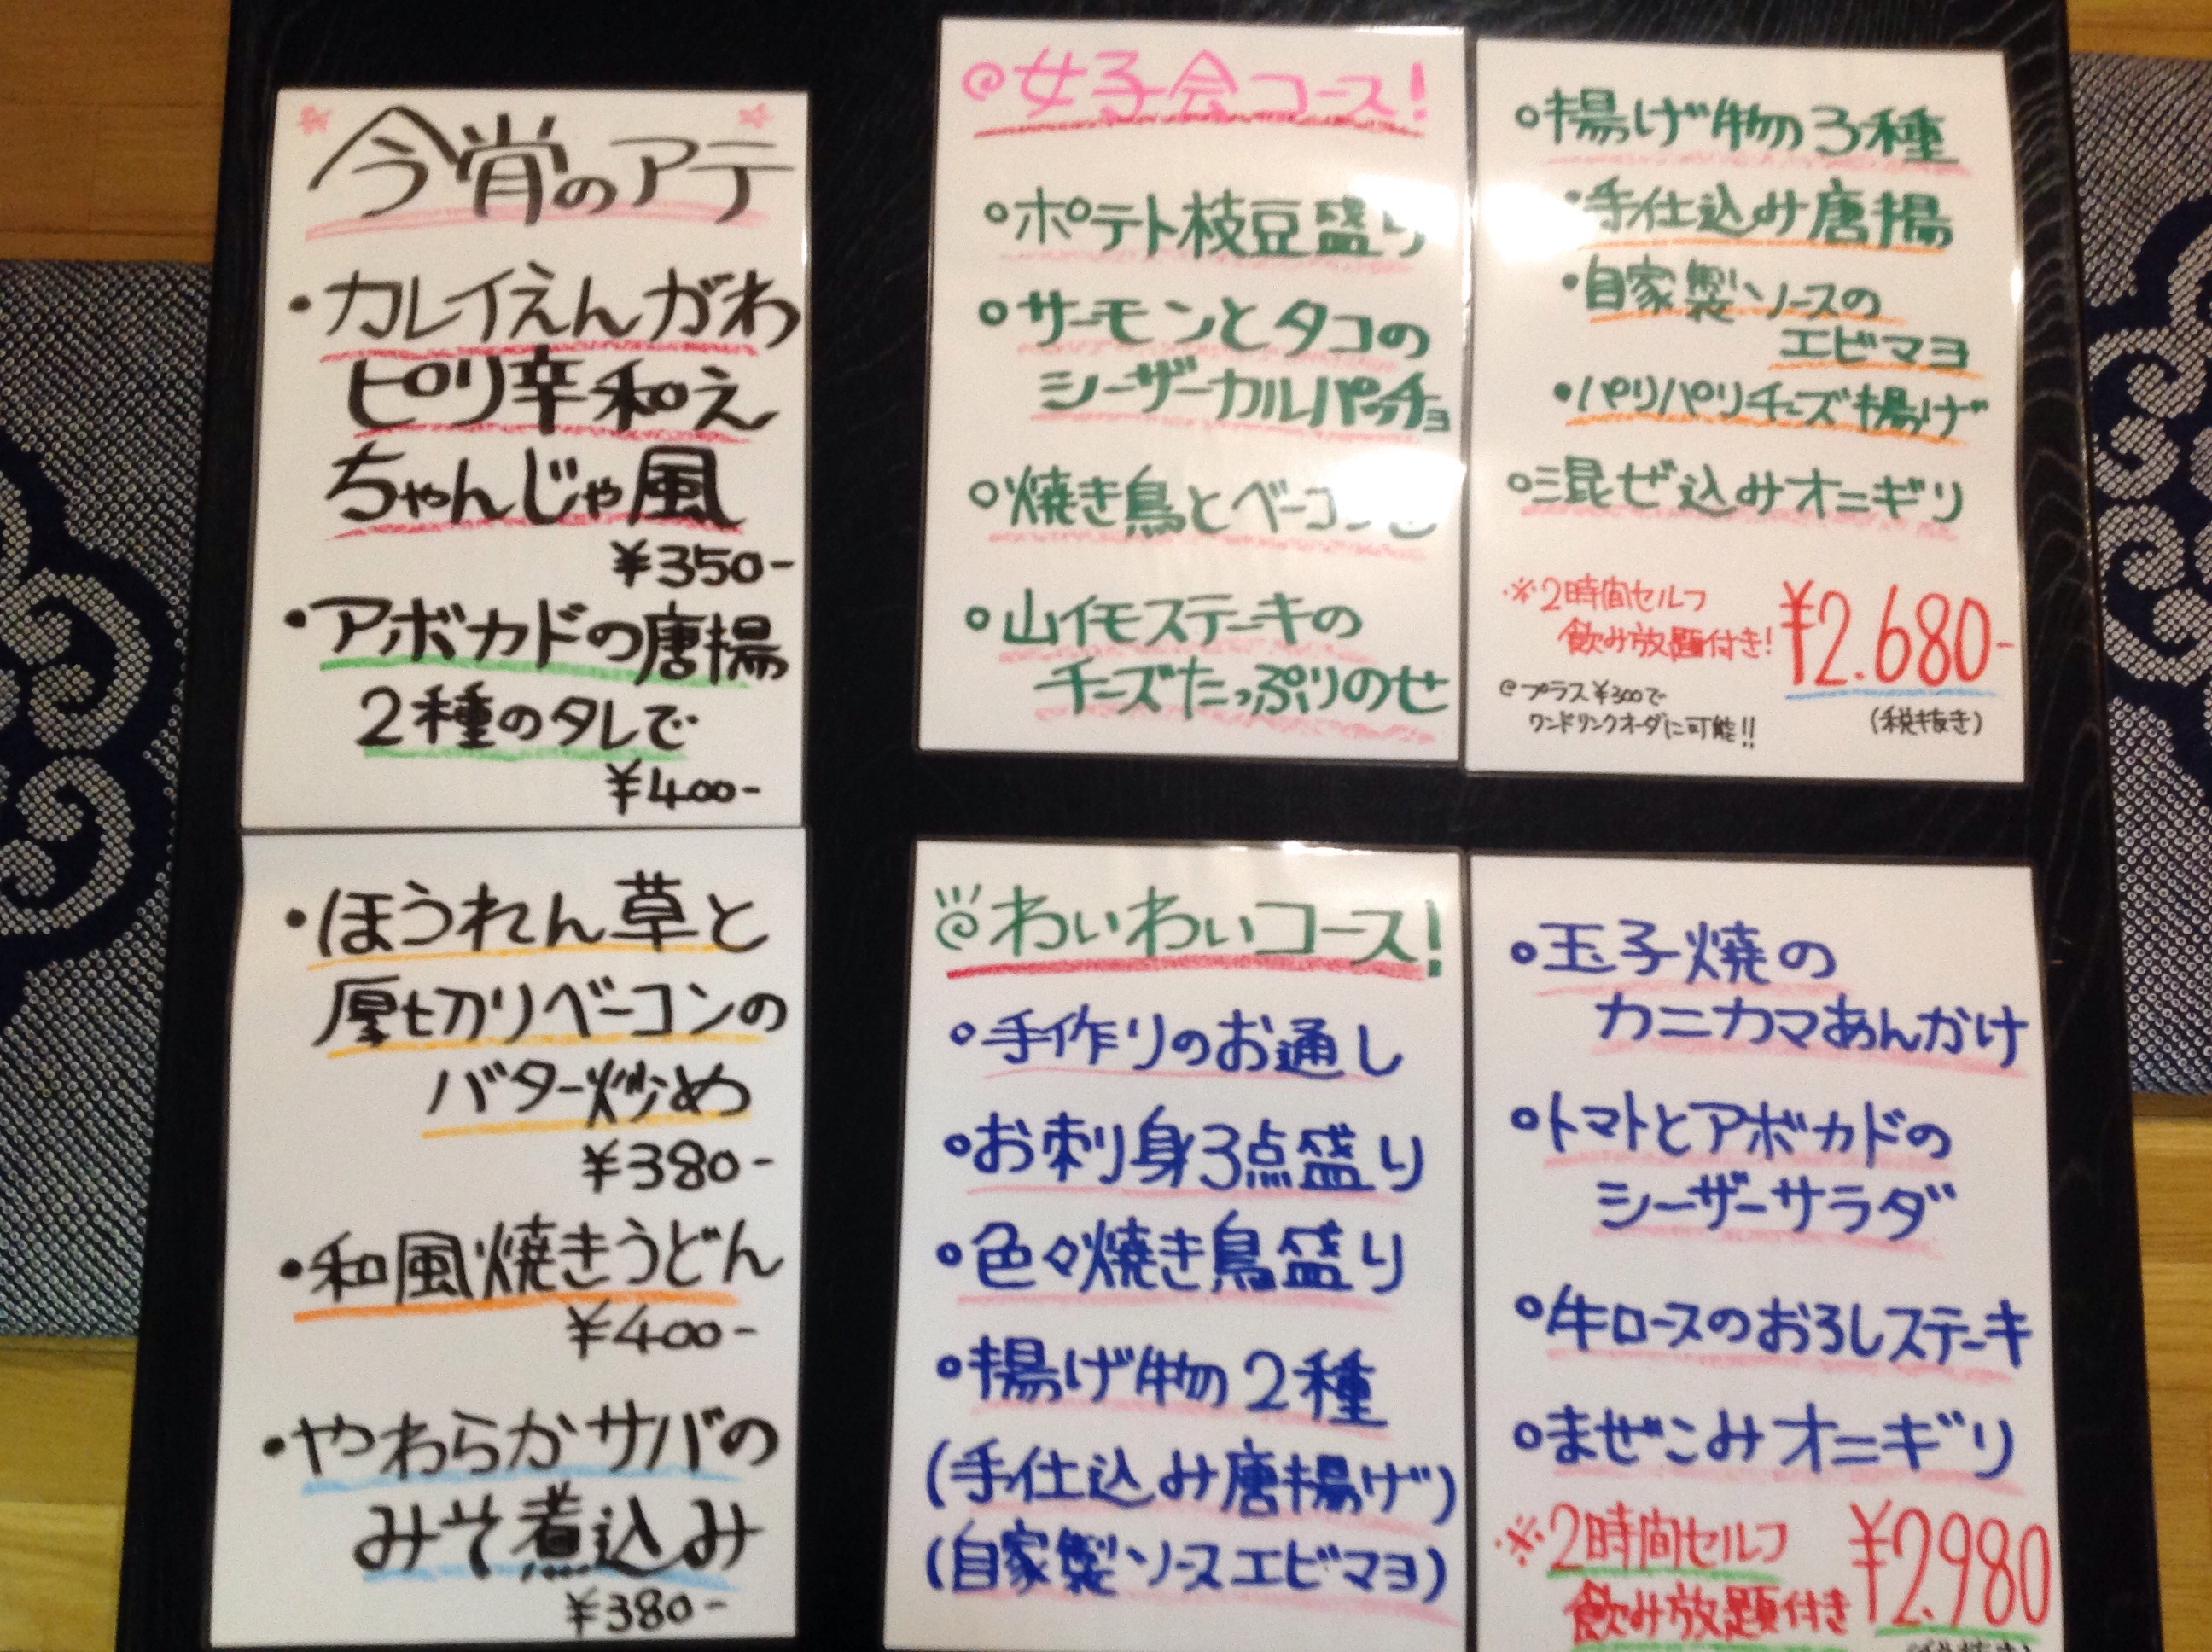 今宵のアテ
・カレイえんがわ
ピリ辛和え
ちゃんじゃ風
¥350-
・アボカドの唐揚
2種のタレで
¥400-
・ほうれん草と
厚切りベーコンの
バター炒め
¥380-
・和風焼きうどん
¥400-
・やわらかサバの
みそ煮込み
¥380-
女子会コース!
○ポテト枝豆盛り
○サーモンとタコの
シーザーカルパッチョ
○焼き鳥とベーコン
○山イモステーキの
チーズたっぷりのせ
○揚げ物3種
・手仕込み唐揚
・自家製ソースの
エビマヨ
・パリパリチーズ揚げ
○混ぜ込みオニギリ
※2時間セルフ
飲み放題付き!
¥2.680-
プラス¥300で
ワンドリンクオーダに可能!!
(税抜き)
わいわいコース!
○手作りのお通し
○お刺り身3点盛り
○色々焼き鳥盛り
○揚げ物2種
(手仕込み唐揚げ)
(自家製ソースエビマヨ)
○玉子焼の
カニカマあんかけ
○トマトとアボカドの
シーザーサラダ
○牛ロースのおろしステーキ
○まぜこみオニギリ
※2時間セルフ
飲み放題付き
¥2.980